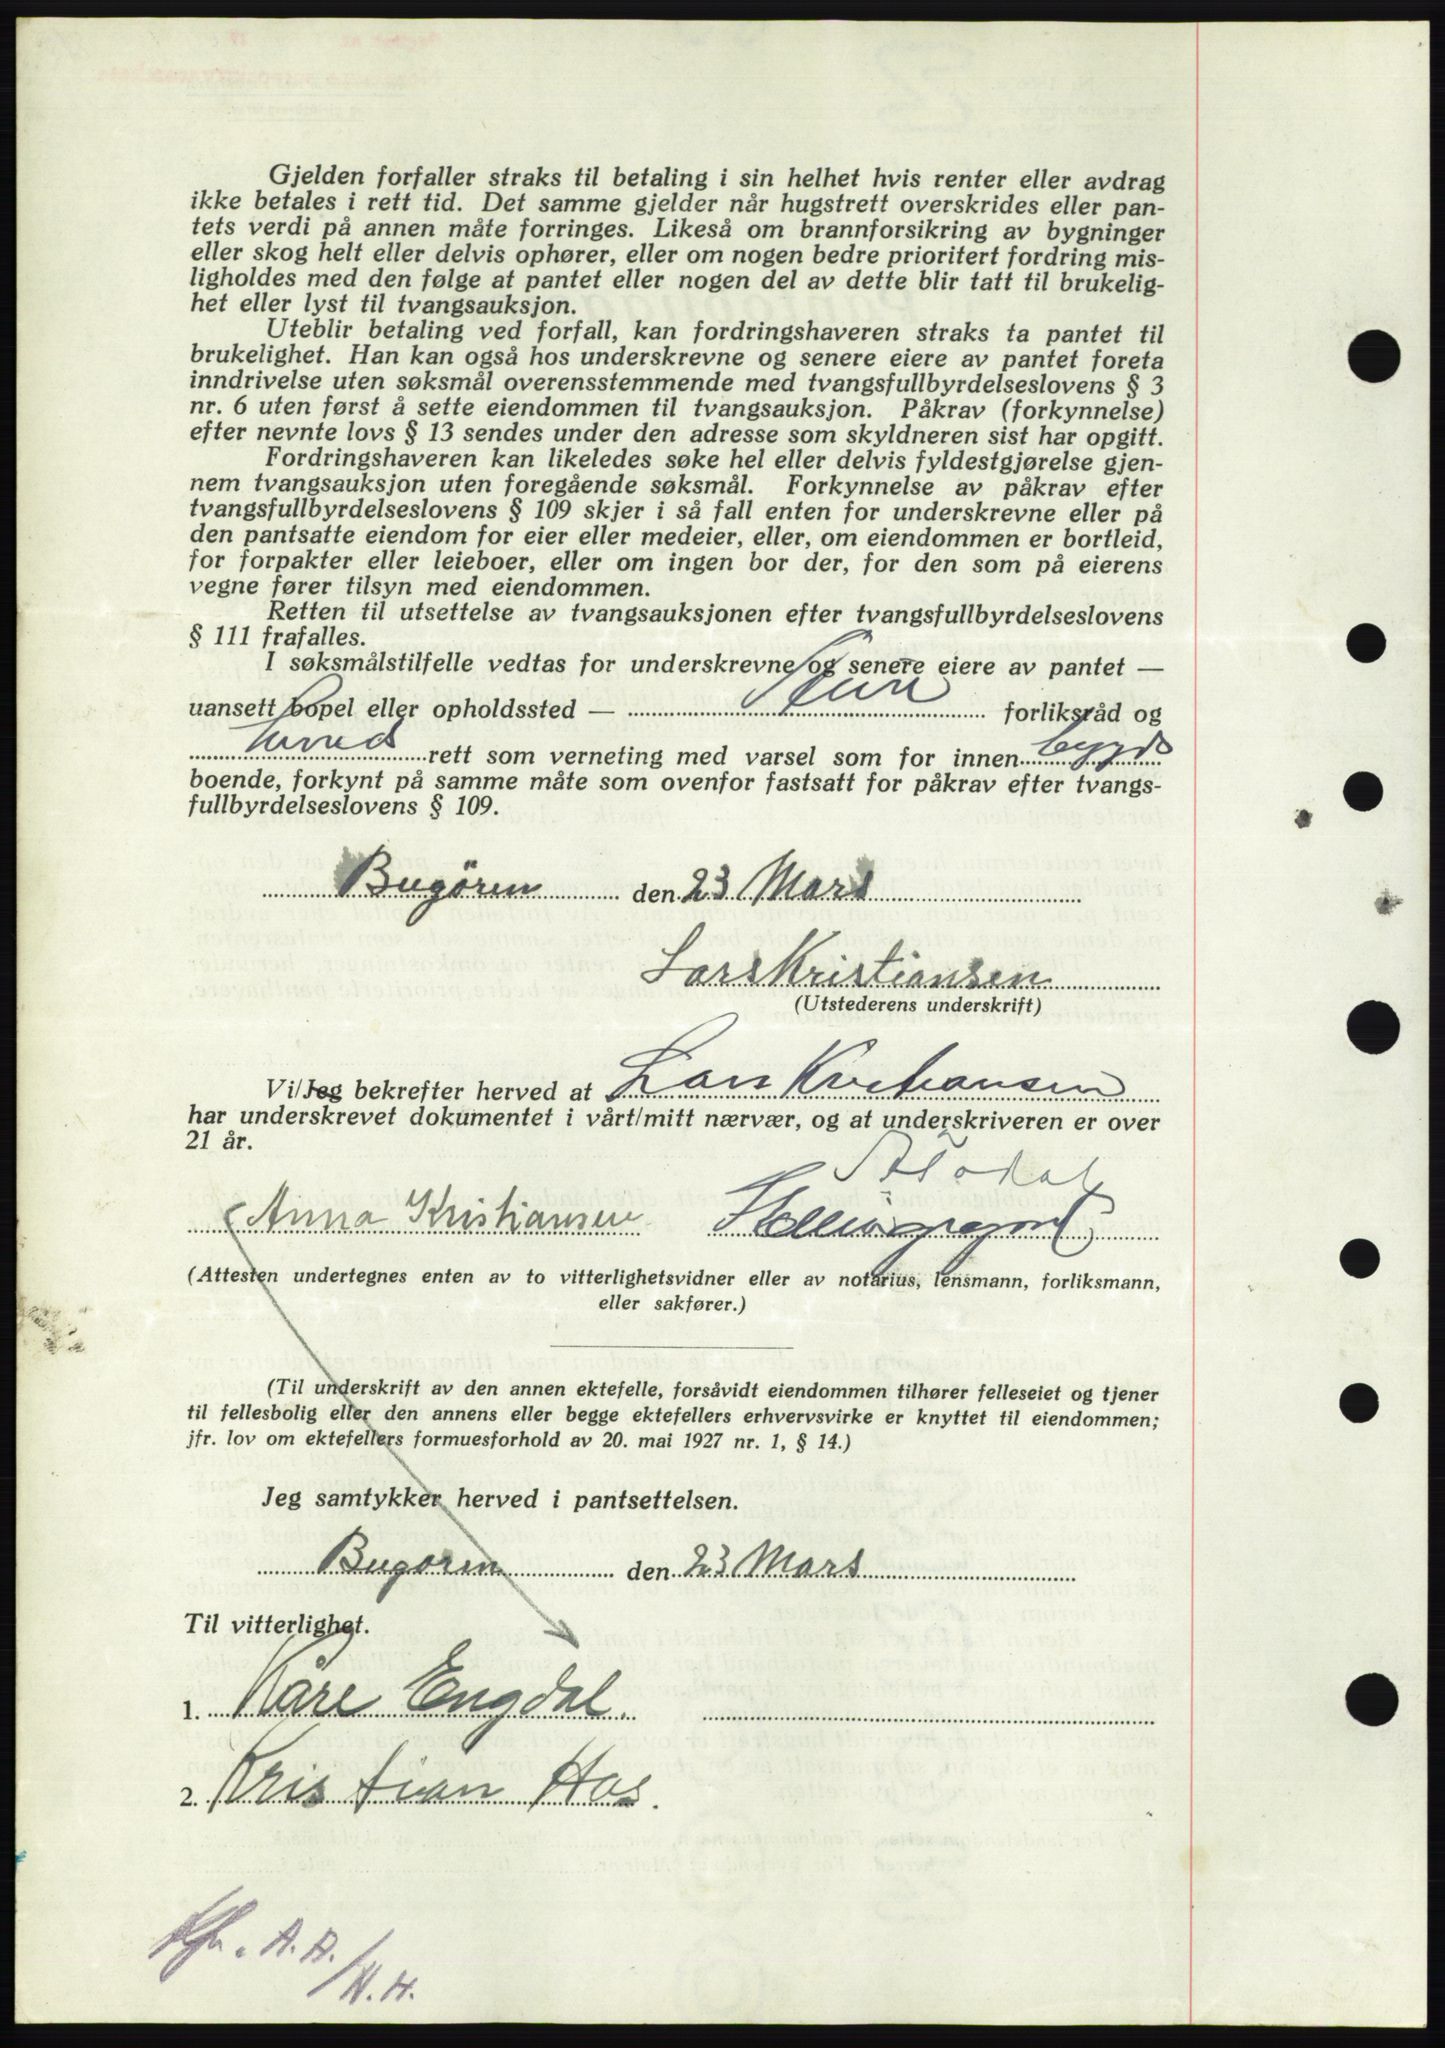 Gjelden forfaller straks til betaling i sin helhet hvis renter eller avdrag
ikke betales i rett tid. Det samme gjelder når hugstrett overskrides eller pan-
tets verdi på annen måte forringes. Likeså om brannforsikring av bygninger
eller skog helt eller delvis ophører, eller om nogen bedre prioritert fordring mis-
ligholdes med den følge at pantet eller nogen del av dette blir tatt til brukelig-
het eller lyst til tvangsauksjon.
Uteblir betaling ved forfall, kan fordringshaveren straks ta pantet til
brukelighet. Han kan også hos underskrevne og senere eiere av pantet foreta
inndrivelse uten søksmål overensstemmende med tvangsfullbyrdelseslovens § 3
nr. 6 uten først å sette eiendommen til tvangsauksjon. Påkrav (forkynnelse)
efter nevnte lovs § 13 sendes under den adresse som skyldneren sist har opgitt.
Fordringshaveren kan likeledes søke hel eller delvis fyldestgjørelse gjen-
nem tvangsauksjon uten foregående søksmål. Forkynnelse av påkrav efter
tvangsfullbyrdelseslovens § 109 skjer i så fall enten for underskrevne eller på
den pantsatte eiendom for eier eller medeier, eller, om eiendommen er bortleid,
for forpakter eller leieboer, eller om ingen bor der, for den som på eierens
vegne fører tilsyn med eiendommen.
Retten til utsettelse av tvangsauksjonen efter tvangsfullbyrdelseslovens
§ 111 frafalles.
I søksmålstilfelle vedtas for underskrevne og senere eiere av pantet —
uansett bopel eller opholdssted — forliksråd og
herreds rett som verneting med varsel som for innen bygds
boende, forkynt på samme måte som ovenfor fastsatt for påkrav efter tvangs-
fullbyrdelseslovens § 109.
Bugøren den 23 Mars
Lars Kristiansen
(Utstederens underskrift)
Vi/Jeg bekrefter herved at Lars Kristiansen
har underskrevet dokumentet i vårt/mitt nærvær, og at underskriveren er over
21 år.
Anna Kristiansen
(Attesten undertegnes enten av to vitterlighetsvidner eller av notarius, lensmann, forliksmann,
eller sakfører.)
(Til underskrift av den annen ektefelle, forsåvidt eiendommen tilhører felleseiet og tjener
til fellesbolig eller den annens eller begge ektefellers erhvervsvirke er knyttet til eiendommen;
jfr. lov om ektefellers formuesforhold av 20. mai 1927 nr. 1, § 14.)
Jeg samtykker herved i pantsettelsen.
Bugøren den 23 Mars
Til vitterlighet.
1. Kåre Engdal.
2. Kristian Hos.
A. A./H. H.